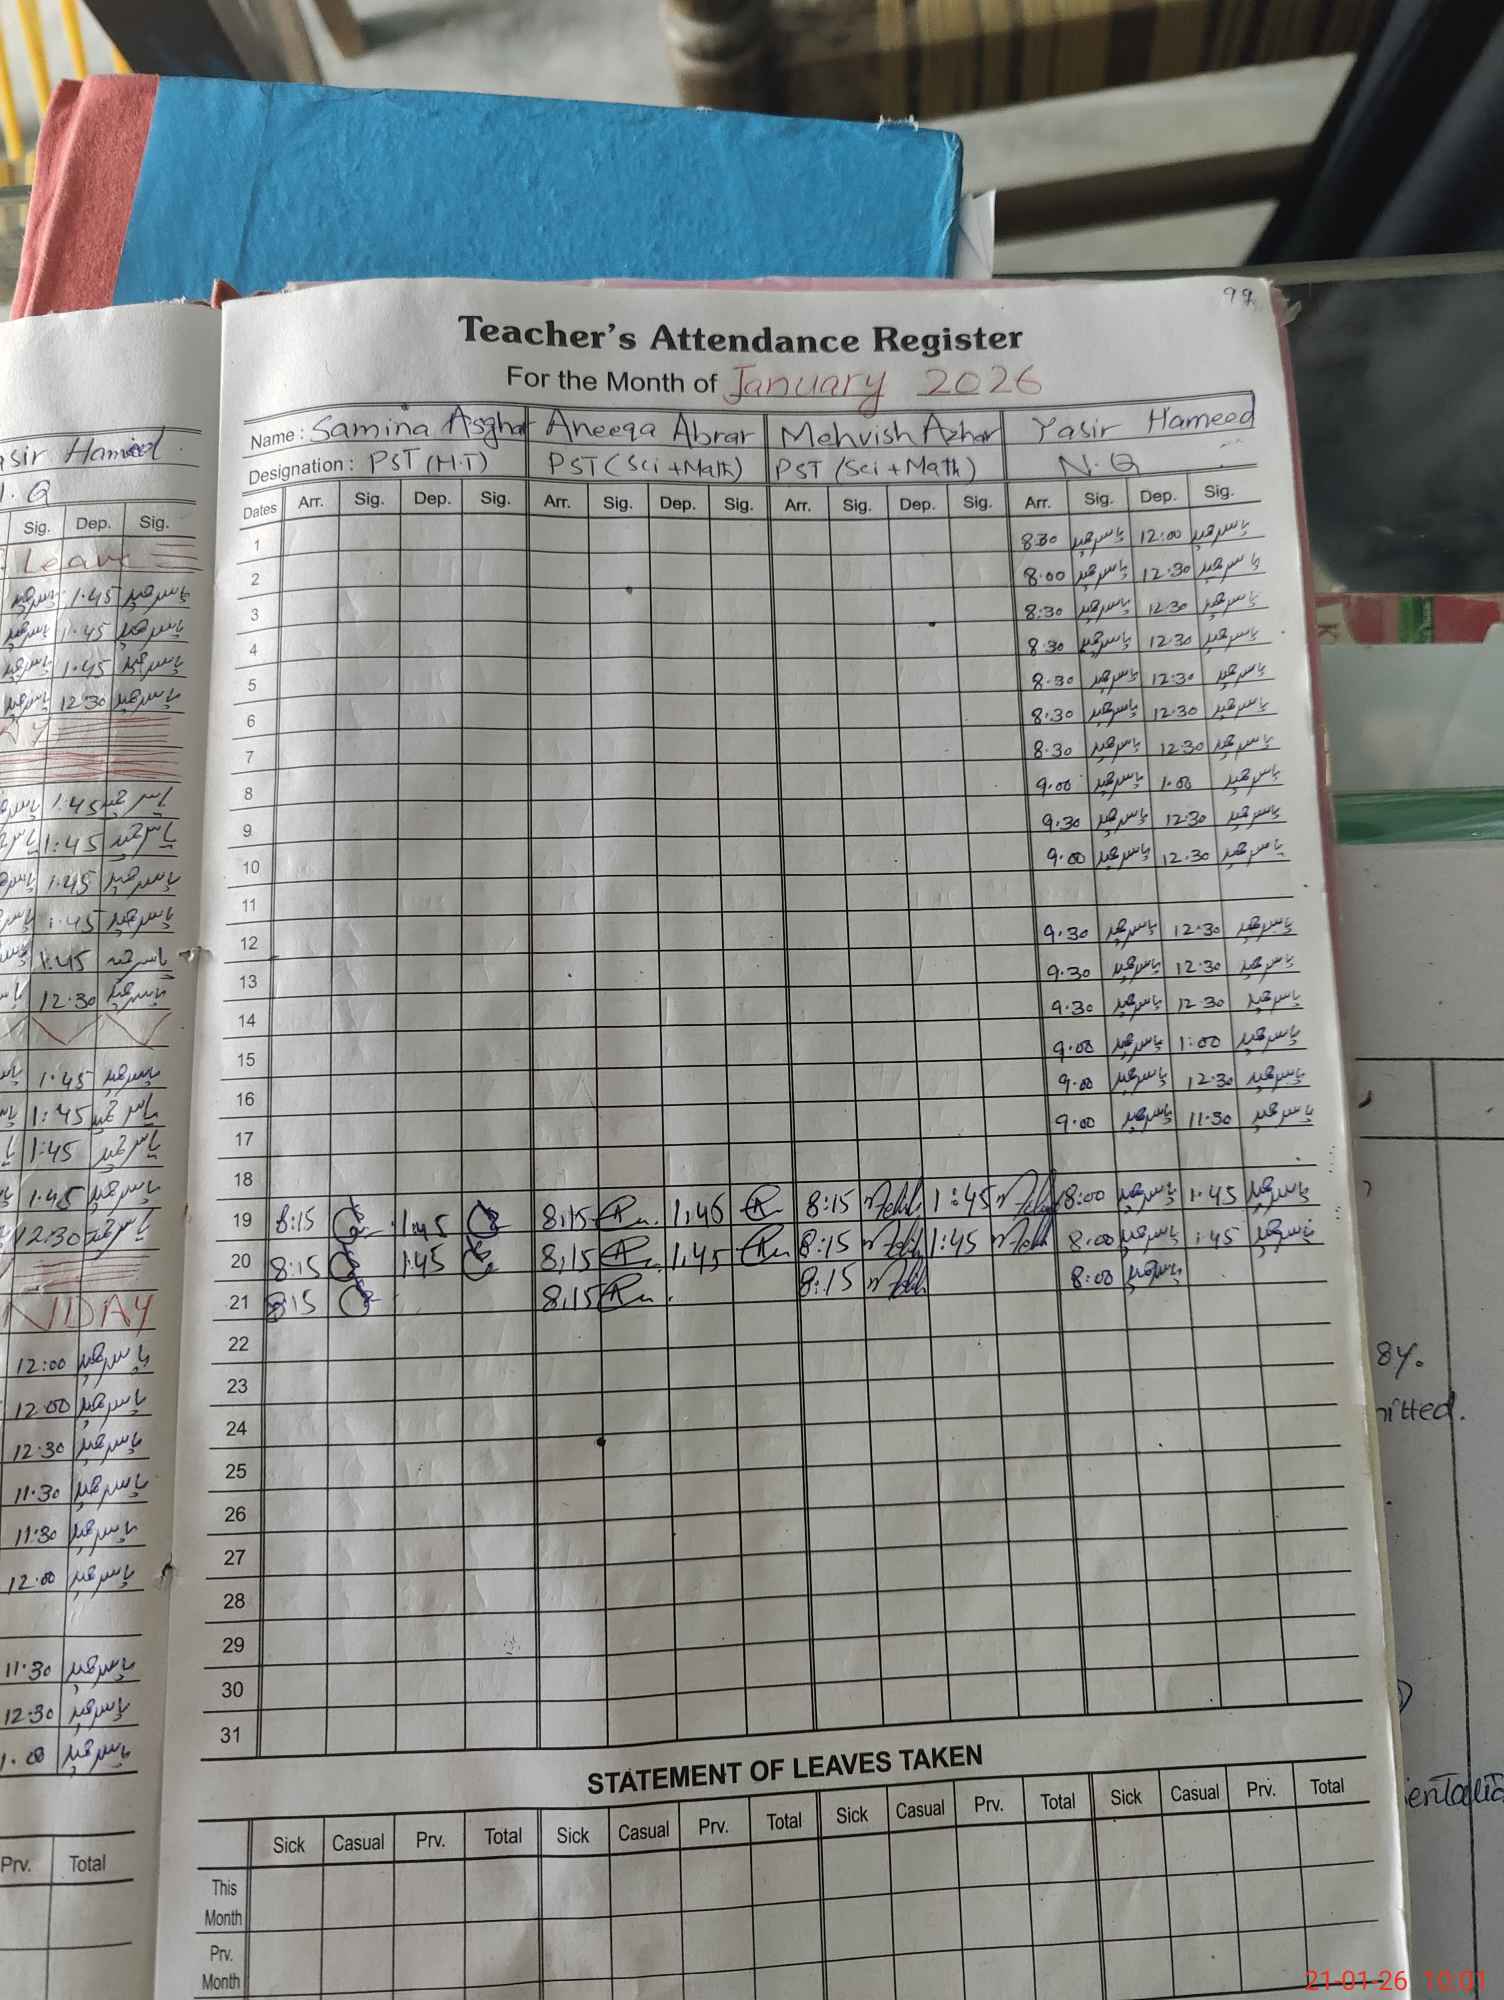 99
Teacher's Attendance Register
For the Month of January 2026
Name: Samina Asghar Aneeqa Abrar Mehvish Azhar Yasir Hameed
Designation: PST (H.T) PST (Sci + Math) PST (Sci + Math) N.Q
Dates Arr. Sig. Dep. Sig. Arr. Sig. Dep. Sig. Arr. Sig. Dep. Sig. Arr. Sig. Dep. Sig.
1 8:30 یاسر حمید 12:00 یاسر حمید
2 8:00 یاسر حمید 12:30 یاسر حمید
3 8:30 یاسر حمید 12:30 یاسر حمید
4 8:30 یاسر حمید 12:30 یاسر حمید
5 8:30 یاسر حمید 12:30 یاسر حمید
6 8:30 یاسر حمید 12:30 یاسر حمید
7 8:30 یاسر حمید 12:30 یاسر حمید
8 9:00 یاسر حمید 1:00 یاسر حمید
9 9:30 یاسر حمید 12:30 یاسر حمید
10 9:00 یاسر حمید 12:30 یاسر حمید
11
12 9:30 یاسر حمید 12:30 یاسر حمید
13 9:30 یاسر حمید 12:30 یاسر حمید
14 9:30 یاسر حمید 12:30 یاسر حمید
15 9:00 یاسر حمید 1:00 یاسر حمید
16 9:00 یاسر حمید 12:30 یاسر حمید
17 9:00 یاسر حمید 11:30 یاسر حمید
18
19 8:15 1:45 8:15 1:45 8:15 1:45 8:00 یاسر حمید 1:45 یاسر حمید
20 8:15 1:45 8:15 1:45 8:15 1:45 8:00 یاسر حمید 1:45 یاسر حمید
21 8:15 8:15 8:15 8:00 یاسر حمید
22
23
24
25
26
27
28
29
30
31
STATEMENT OF LEAVES TAKEN
Sick Casual Prv. Total Sick Casual Prv. Total Sick Casual Prv. Total Sick Casual Prv. Total
This Month
Prv. Month
Hameed
Sig. Dep. Sig.
Leave
1:45 یاسر حمید
1:45 یاسر حمید
1:45 یاسر حمید
12:30 یاسر حمید
1:45 یاسر حمید
1:45 یاسر حمید
1:45 یاسر حمید
1:45 یاسر حمید
1:45 یاسر حمید
12:30 یاسر حمید
1:45 یاسر حمید
1:45 یاسر حمید
1:45 یاسر حمید
1:45 یاسر حمید
12:30 یاسر حمید
NDAY
12:00 یاسر حمید
12:00 یاسر حمید
12:30 یاسر حمید
11:30 یاسر حمید
11:30 یاسر حمید
12:00 یاسر حمید
11:30 یاسر حمید
12:30 یاسر حمید
1:00 یاسر حمید
Prv. Total
21-01-26 10:01